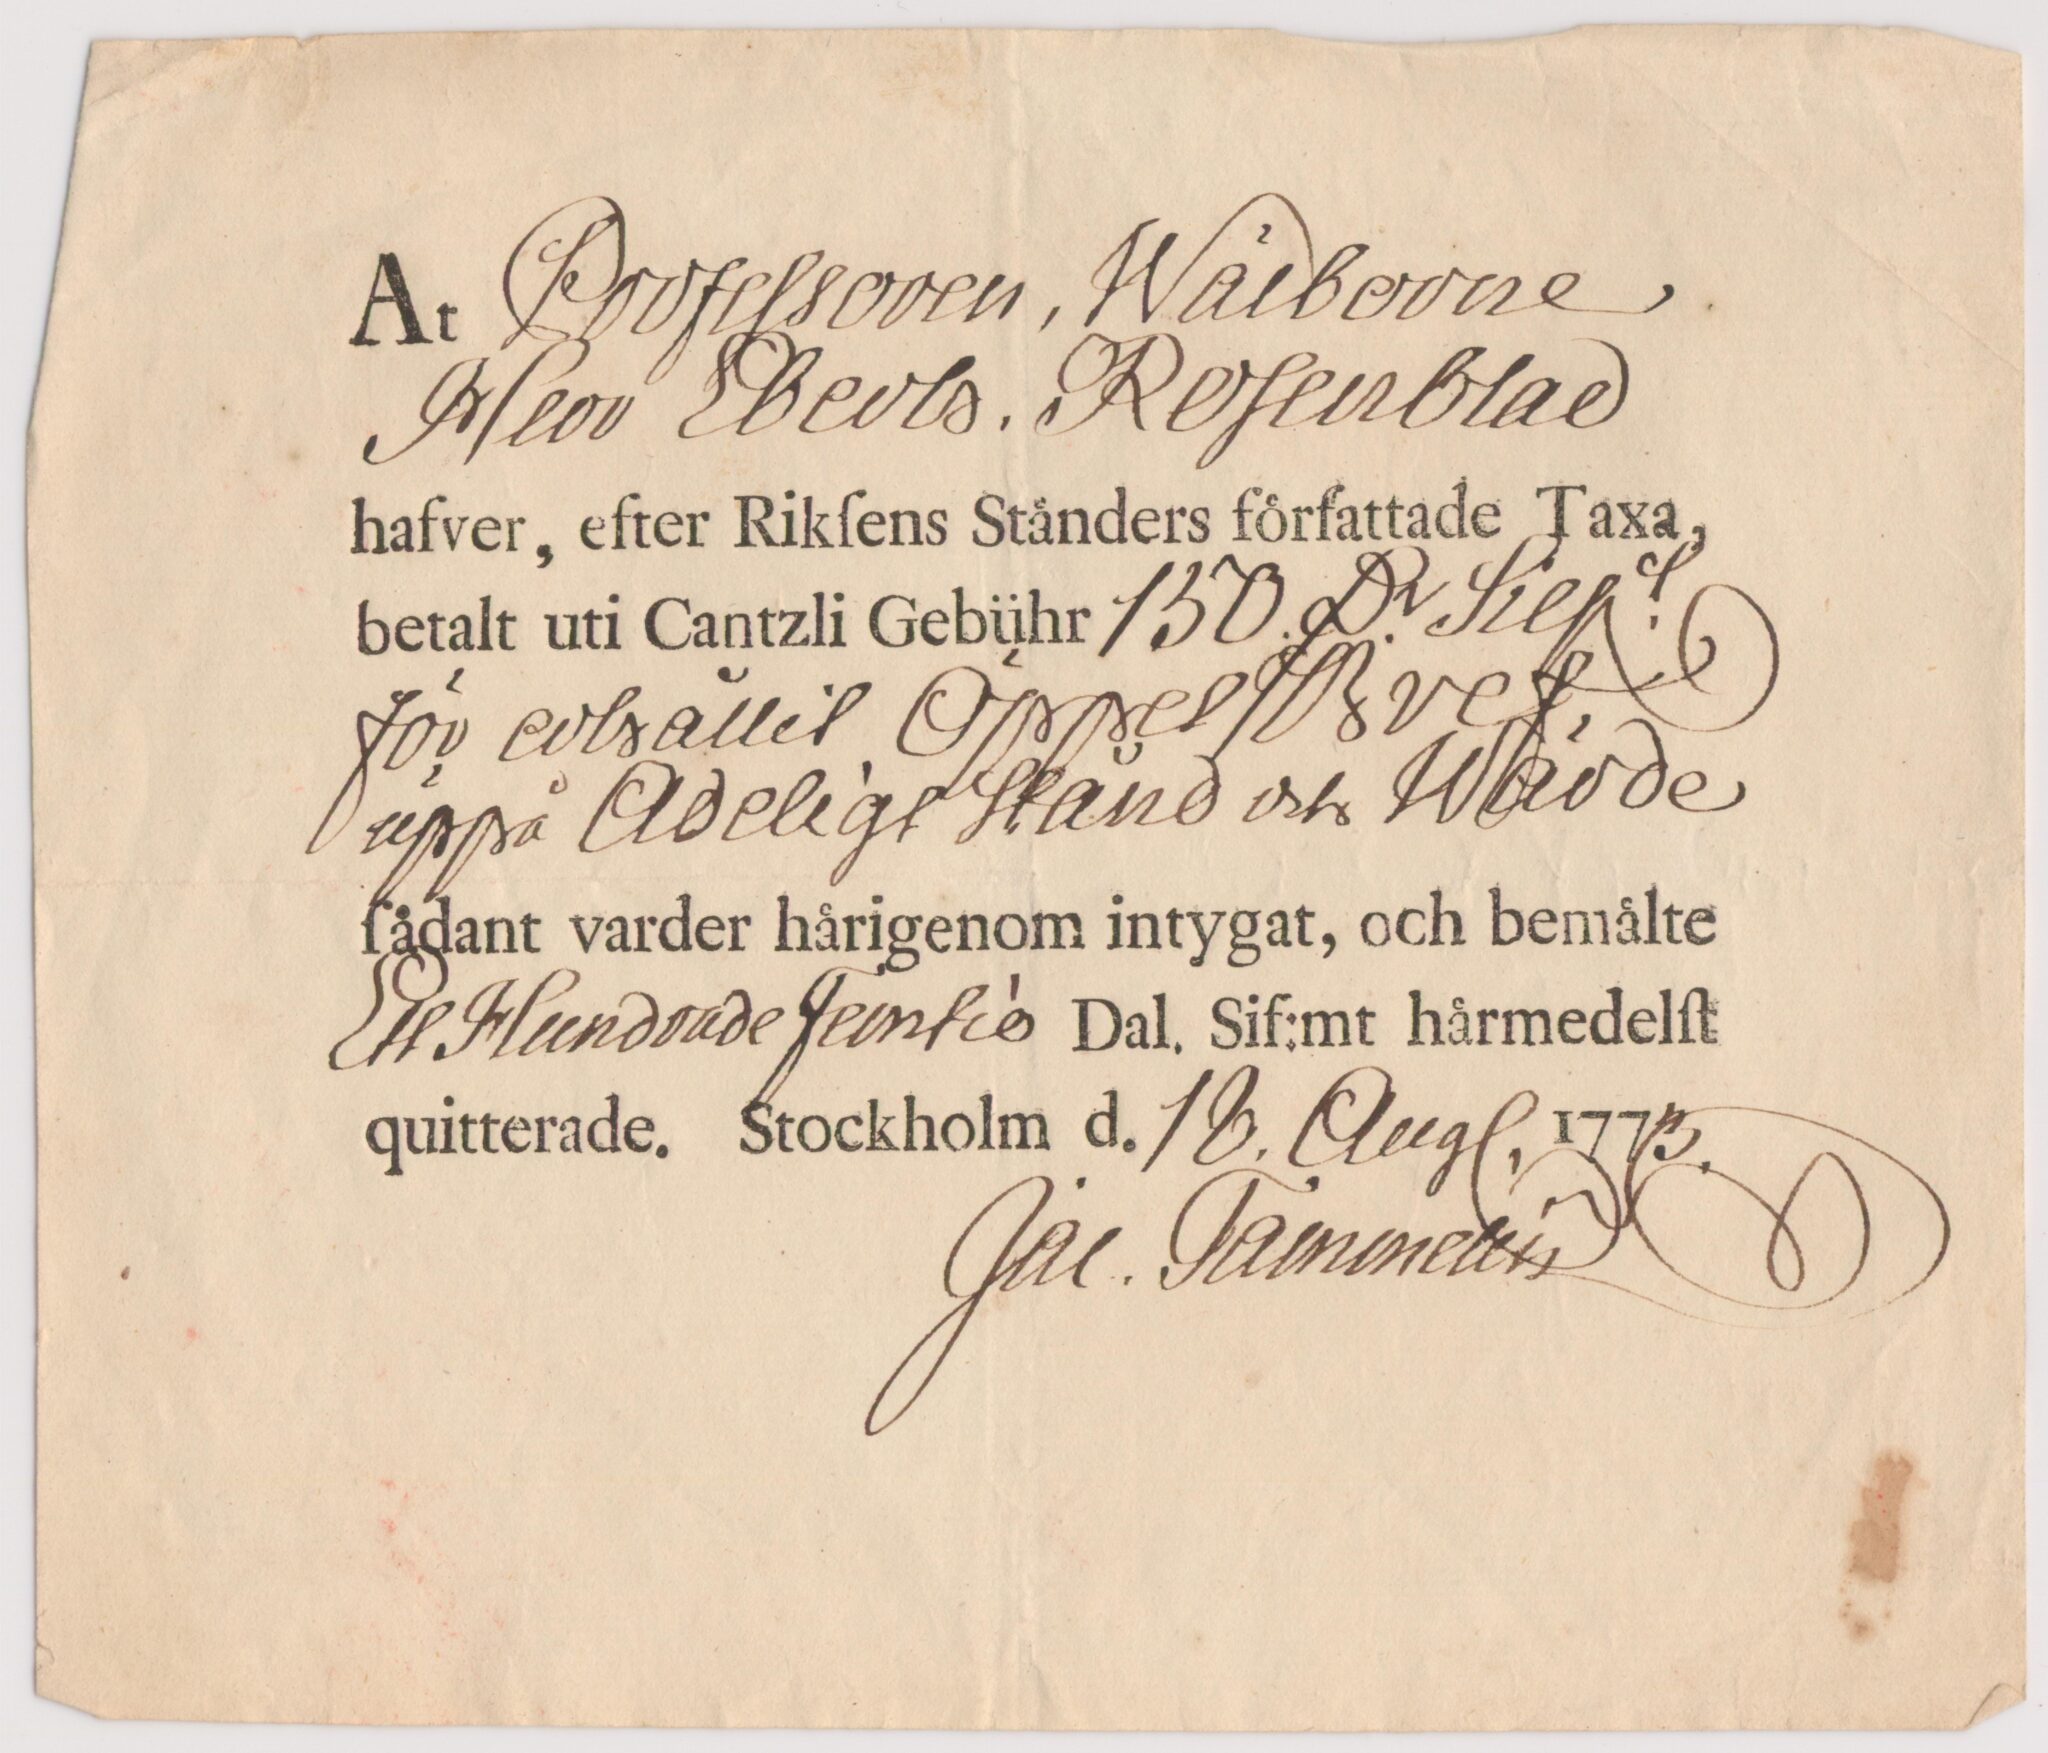 At Professoren, Wälborne
Herr Eberh. Rosenblad
hafver, efter Rikſens Stånders fôrfattade Taxa,
betalt uti Cantzli Gebühr 150. D.r Silf.
för erhållit Öppet Bref,
uppå Adeligt Stånd och Wärde
ſådant varder hårigenom intygat, och bemålte
Ett Hundrade Femtio Dal. Sif:mt hårmedelſt
quitterade. Stockholm d. 18. Aug. 1773.
Jac. Tammelin